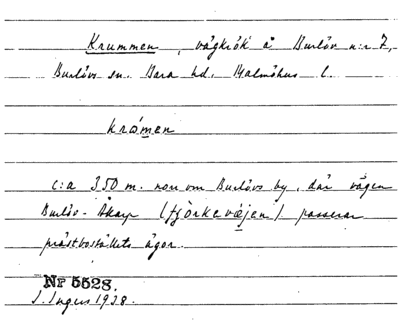 Krummen, vägkrök å Burlöv n:r 7,
Burlövs sn. Bara hd. Malmöhus l.
kråmen
c:a 350 m. norr om Burlövs by, där vägen
Burlöv - Åkarp (fjörkevæjen) passerar
prästboställets ägor.
Nr 5528.
1938.